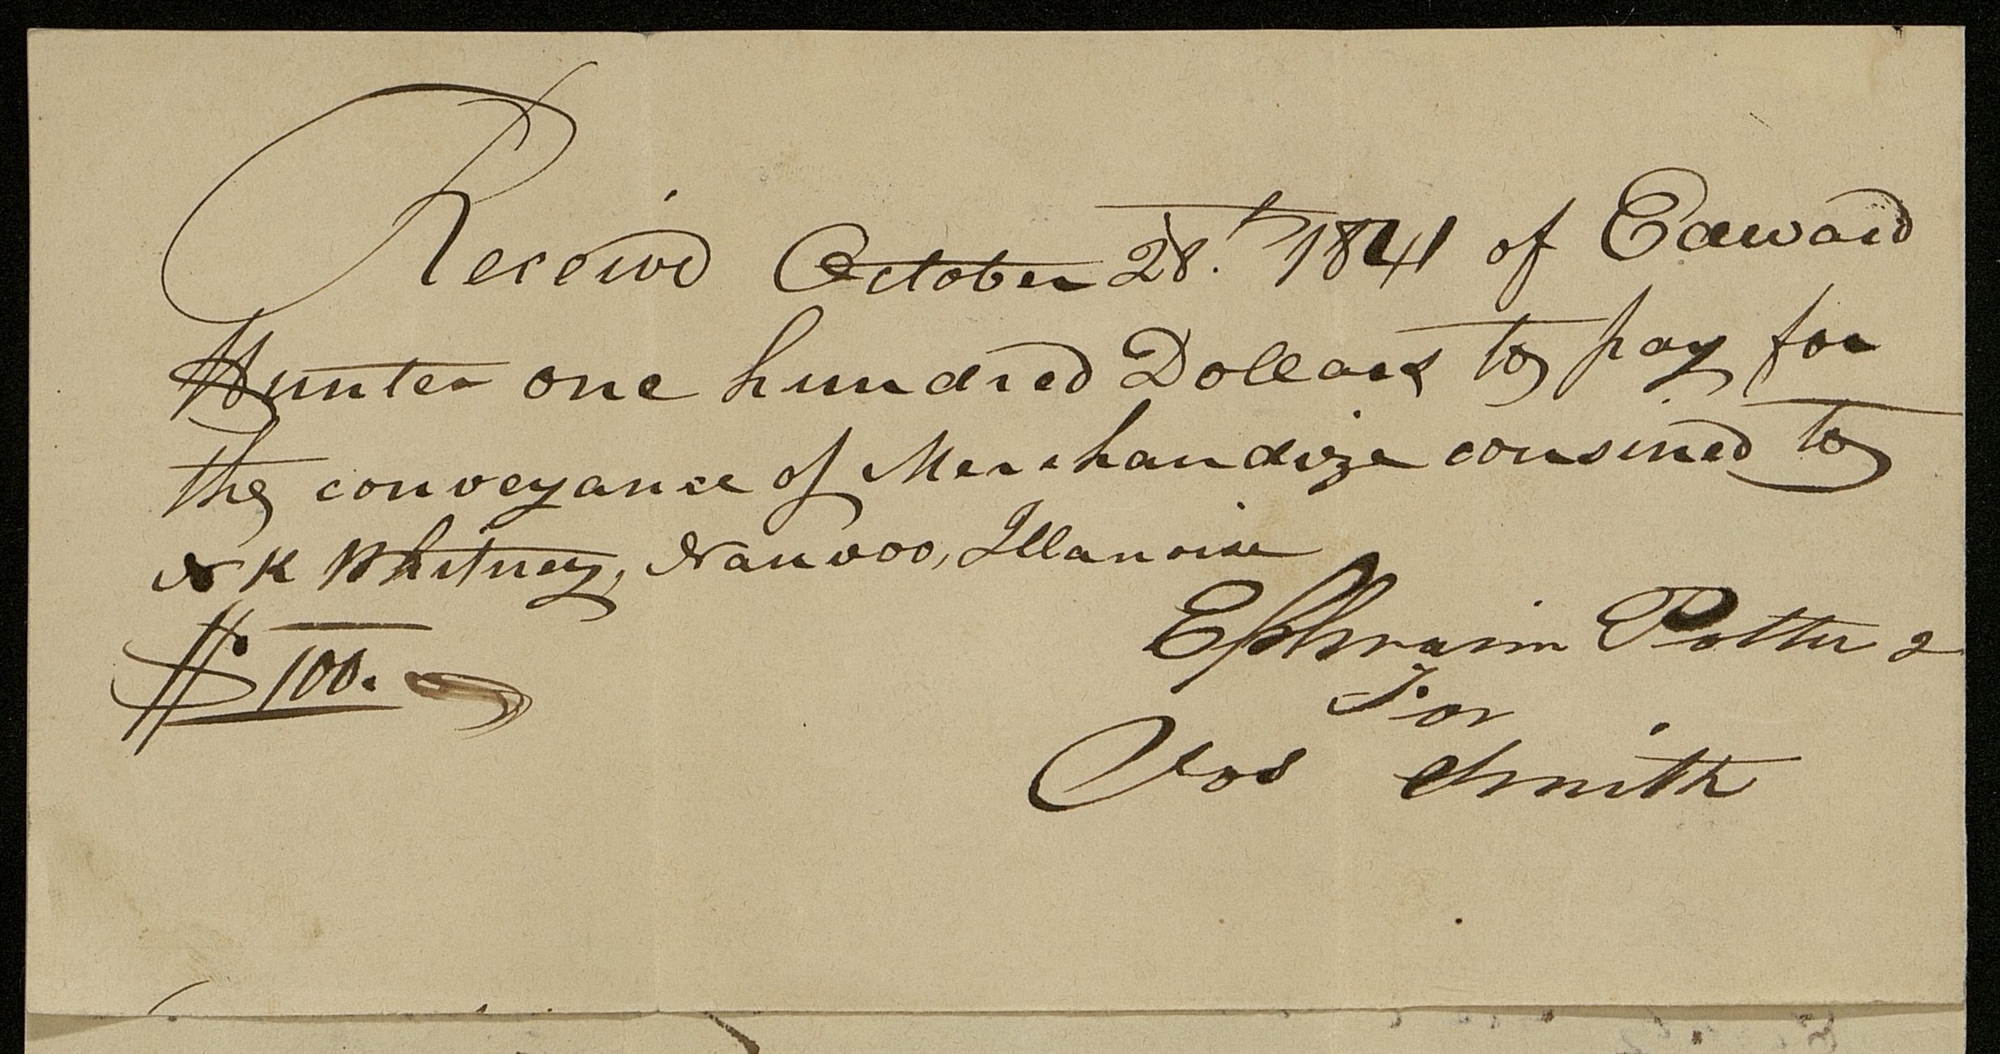 Receivd October 28th 1841 of Edward
Hunter one hundred Dollars to pay for
the conveyance of Merchandize consined to
N K Whitney, Nauvoo, Illanoise
$100.
Ephraim Potter
For
Jos Smith